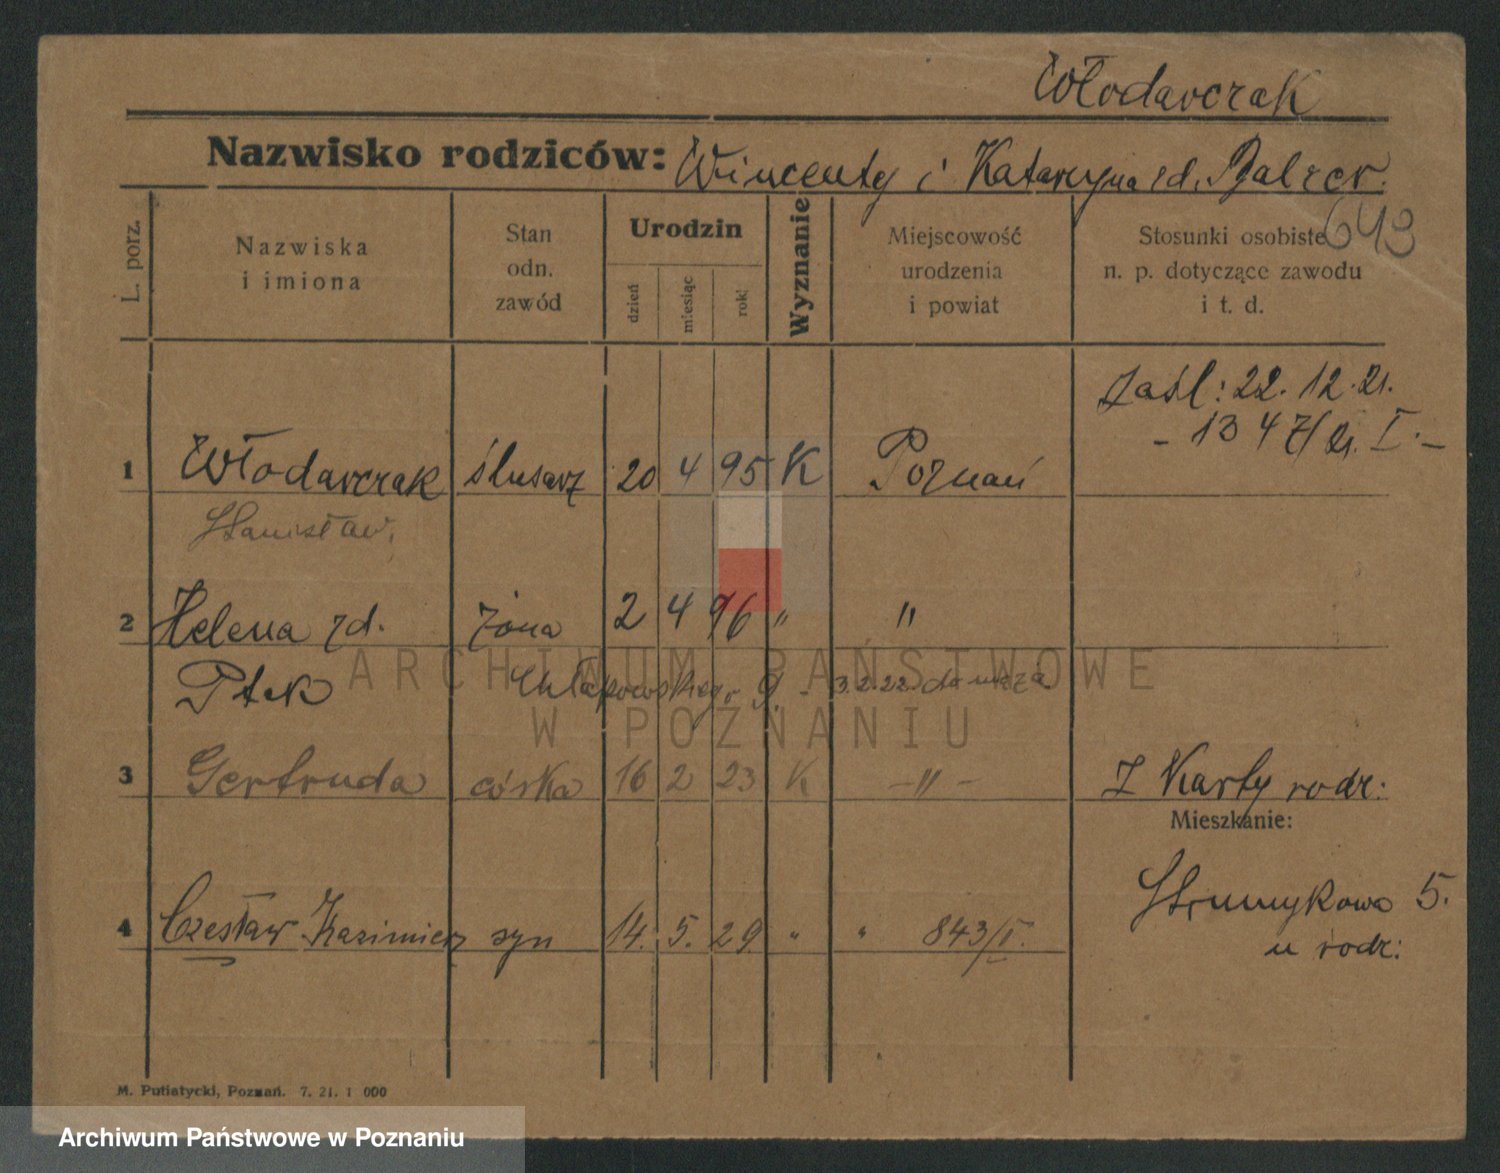 Włodarczak
Nazwisko rodziców: Wincenty i Katarzyna zd. Balcer.
643
L. porz.
Nazwiska
i imiona
Stan
odn.
zawód
Urodzin
dzień
miesiąc
rok
Wyznanie
Miejscowość
urodzenia
i powiat
Stosunki osobiste
n. p. dotyczące zawodu
i t. d.
zaśl: 22. 12. 21.
- 1347/21. I. -
1 Włodarczak ślusarz 20 4 95 K Poznań
Stanisław.
2 Helena zd. żona 2 4 96 " "
Ptak Chłapowskiego 9. - 3.2.22. do męża
3 Gertruda córka 16 2 23 K -"-
Z Karty rodz:
Mieszkanie:
Strumykowa 5.
u rodz:
4 Czesław Kazimierz syn 14. 5. 29. " " 843/I.
M. Putiatycki, Poznań. 7. 21. 1 000
ARCHIWUM PAŃSTWOWE
W POZNANIU
Archiwum Państwowe w Poznaniu